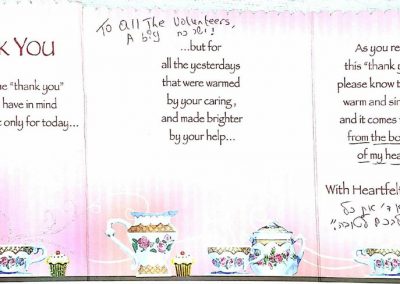 k You
e "thank you"
have in mind
e only for today...
To All The Volunteers,
A big יישר כח!
...but for
all the yesterdays
that were warmed
by your caring,
and made brighter
by your help...
As you re
this "thank yo
please know t
warm and sin
and it comes
from the bo
of my hea
With Heartfelt